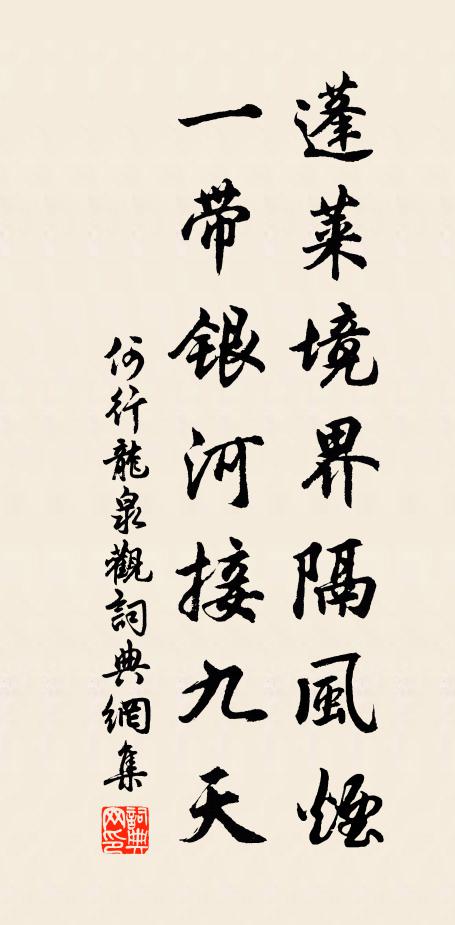 蓬莱境界隔風煙
一带銀河接九天
何行龍泉觀詞典網集
詞典網印